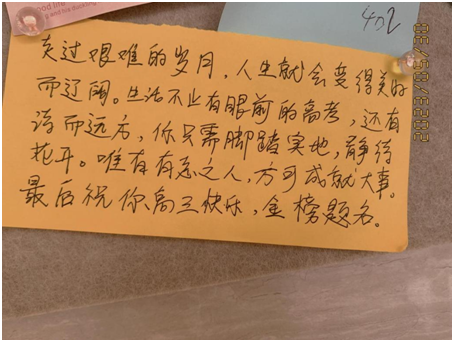 good line
and no duckling
402
熬过艰难的岁月，人生就会变得美好
而辽阔。生活不止有眼前的高考，还有
诗而远方，你只需脚踏实地，静待
花开。唯有有志之人，方可成就大事。
最后祝你高三快乐，金榜题名。